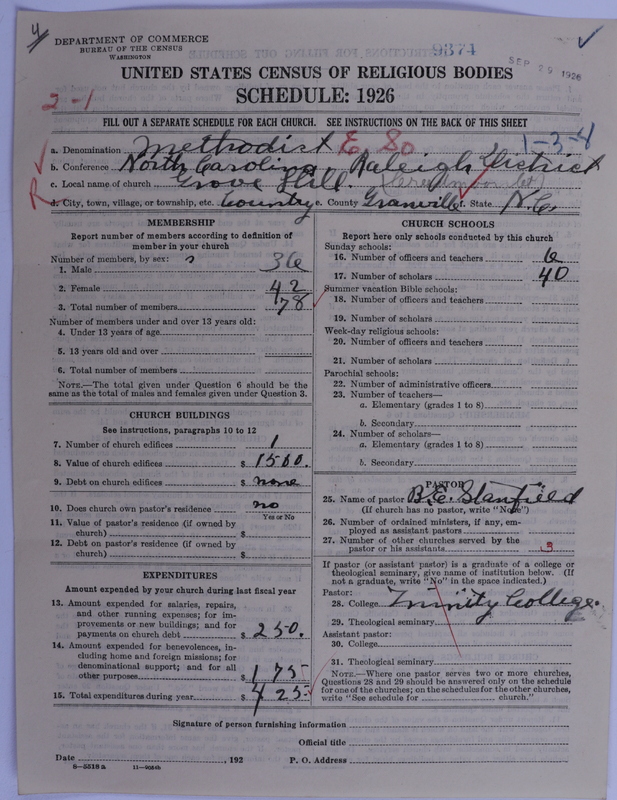 4
DEPARTMENT OF COMMERCE
BUREAU OF THE CENSUS
WASHINGTON
9374
SEP 29 1926
UNITED STATES CENSUS OF RELIGIOUS BODIES
SCHEDULE: 1926
2-1
FILL OUT A SEPARATE SCHEDULE FOR EACH CHURCH. SEE INSTRUCTIONS ON THE BACK OF THIS SHEET
a. Denomination Methodist E. So 1-3-4
b. Conference North Carolina Raleigh District
c. Local name of church Grove Hill.
d. City, town, village, or township, etc. Country e. County Granville f. State N.C.
MEMBERSHIP
Report number of members according to definition of
member in your church
Number of members, by sex:
1. Male 36
2. Female 42
3. Total number of members 78
Number of members under and over 13 years old:
4. Under 13 years of age
5. 13 years old and over
6. Total number of members
NOTE.—The total given under Question 6 should be the
same as the total of males and females given under Question 3.
CHURCH BUILDINGS
See instructions, paragraphs 10 to 12
7. Number of church edifices 1
8. Value of church edifices $ 1500.
9. Debt on church edifices $ none
10. Does church own pastor's residence no
Yes or No
11. Value of pastor's residence (if owned by
church) $
12. Debt on pastor's residence (if owned by
church) $
EXPENDITURES
Amount expended by your church during last fiscal year
13. Amount expended for salaries, repairs,
and other running expenses; for im-
provements or new buildings; and for
payments on church debt $ 250.
14. Amount expended for benevolences, in-
cluding home and foreign missions; for
denominational support; and for all
other purposes $ 175
15. Total expenditures during year $ 425
CHURCH SCHOOLS
Report here only schools conducted by this church
Sunday schools:
16. Number of officers and teachers 6
17. Number of scholars 40
Summer vacation Bible schools:
18. Number of officers and teachers
19. Number of scholars
Week-day religious schools:
20. Number of officers and teachers
21. Number of scholars
Parochial schools:
22. Number of administrative officers
23. Number of teachers—
a. Elementary (grades 1 to 8)
b. Secondary
24. Number of scholars—
a. Elementary (grades 1 to 8)
b. Secondary
PASTOR
25. Name of pastor B.E. Stanfield
(If church has no pastor, write "None")
26. Number of ordained ministers, if any, em-
ployed as assistant pastors
27. Number of other churches served by the
pastor or his assistants 3
If pastor (or assistant pastor) is a graduate of a college or
theological seminary, give name of institution below. (If
not a graduate, write "No" in the space indicated.)
Pastor:
28. College Trinity College.
29. Theological seminary
Assistant pastor:
30. College
31. Theological seminary
NOTE.—Where one pastor serves two or more churches,
Questions 28 and 29 should be answered only on the schedule
for one of the churches; on the schedules for the other churches,
write "See schedule for church."
Signature of person furnishing information
Official title
Date , 192 P. O. Address
8-5518a